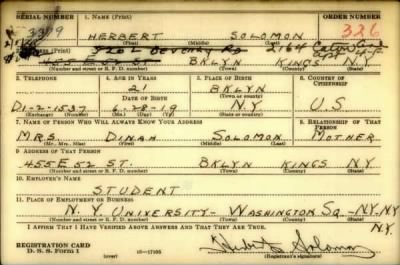 SERIAL NUMBER 1. NAME (Print) ORDER NUMBER
HERBERT SOLOMON 326
(First) (Middle) (Last)
2. ADDRESS (Print)
2164
455 E 52 ST. BKLYN KINGS N.Y.
(Number and street or R. F. D. number) (Town) (County) (State)
3. TELEPHONE 4. AGE IN YEARS 5. PLACE OF BIRTH 6. COUNTRY OF CITIZENSHIP
21 BKLYN
DATE OF BIRTH (Town or county)
DI-2-1537 6-28-19 N.Y. U.S
(Mo.) (Day) (Yr.) (State or country)
7. NAME OF PERSON WHO WILL ALWAYS KNOW YOUR ADDRESS 8. RELATIONSHIP OF THAT PERSON
MRS. DINAH SOLOMON MOTHER
(Mr., Mrs., Miss) (First) (Middle) (Last)
9. ADDRESS OF THAT PERSON
455 E 52 ST. BKLYN KINGS N.Y.
(Number and street or R. F. D. number) (Town) (County) (State)
10. EMPLOYER'S NAME
STUDENT
11. PLACE OF EMPLOYMENT OR BUSINESS
N.Y. UNIVERSITY- WASHINGTON SQ - N.Y. - N.Y
(Number and street or R. F. D. number) (Town) (County) (State)
I AFFIRM THAT I HAVE VERIFIED ABOVE ANSWERS AND THAT THEY ARE TRUE. N.Y.
REGISTRATION CARD
D. S. S. Form 1 (over) 16-17105 Herbert Solomon
(Registrant's signature)